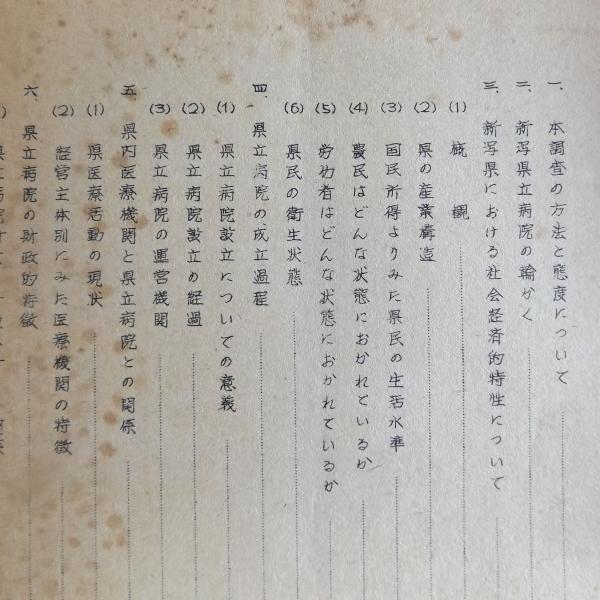 一、本調査の方法と態度について
二、新写県立病院の輪かく
三、新写県における社会経済的特性について
(1) 概観
(2) 県の産業構造
(3) 国民所得よりみた県民の生活水準
(4) 農民はどんな状態におかれているか
(5) 労仂者はどんな状態におかれているか
(6) 県民の衛生状態
四、県立病院の成立過程
(1) 県立病院設立についての意義
(2) 県立病院設立の経過
(3) 県立病院の運営機関
五、県内医療機関と県立病院との関係
(1) 県医療活動の現状
(2) 経営主体別にみた医療機関の特徴
六、県立病院の財政的特徴